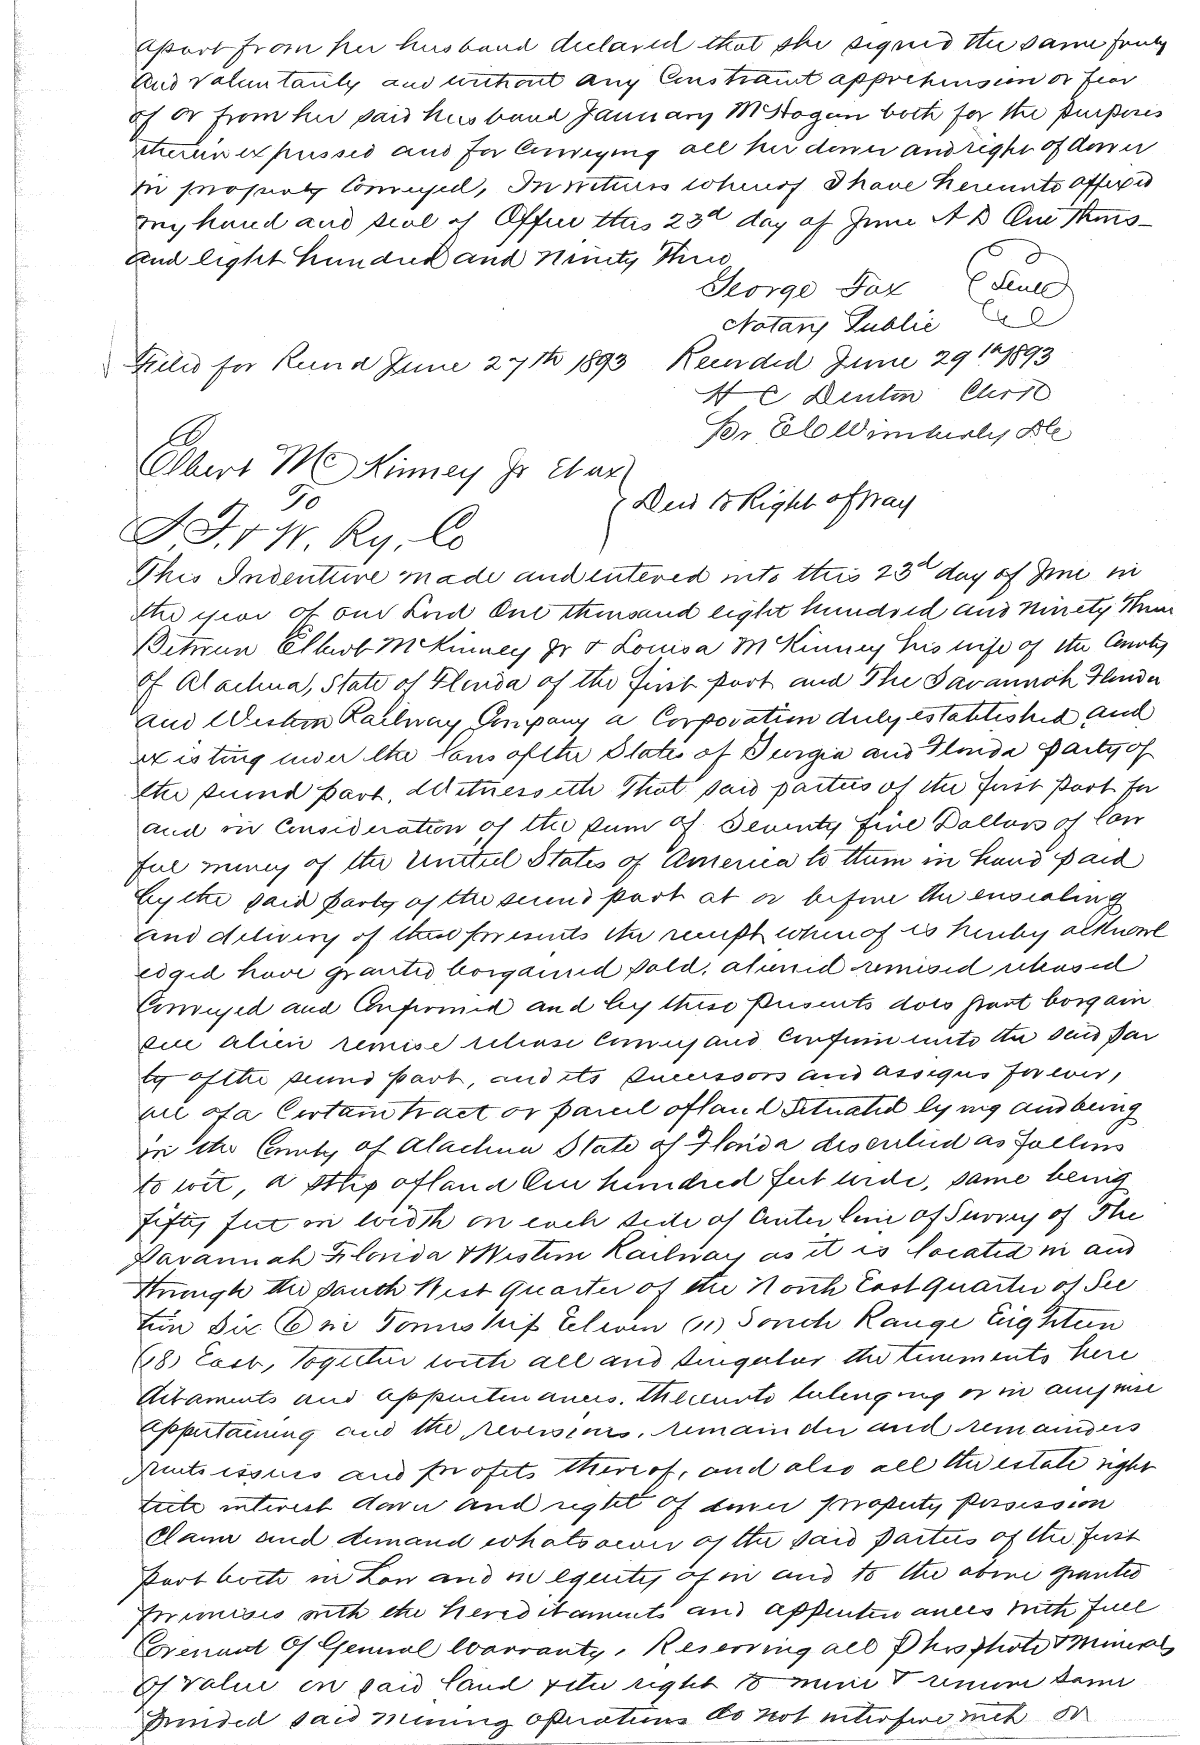 apart from her husband declared that she signed the same freely
and voluntarily and without any Constraint apprehension or fear
of or from her said husband January McHogan both for the purposes
therein expressed and for Conveying all her dower and right of dower
in property Conveyed, In witness whereof I have hereunto affixed
my hand and seal of Office this 23d day of June A D One Thous-
and eight hundred and Ninety Three
George Fox (Seal)
Notary Public
Filed for Record June 27th 1893 Recorded June 29th 1893
H C Denton Clerk
Pr E C Wimberly DC
Elbert McKinney Jr Et ux
To
Deed to Right of Way
S. F. & W. Ry. Co
This Indenture made and entered into this 23d day of June in
the year of our Lord One thousand eight hundred and Ninety Three
Between Elbert McKinney Jr & Louisa McKinney his wife of the County
of Alachua, State of Florida of the first part and The Savannah Florida
and Western Railway Company a Corporation duly established and
existing under the laws of the States of Georgia and Florida party of
the second part, Witnesseth That said parties of the first part for
and in Consideration of the sum of Seventy five Dollars of law
ful money of the United States of America to them in hand paid
by the said party of the second part at or before the ensealing
and delivery of these presents the receipt whereof is hereby acknowl
edged have granted bargained sold, aliened remised released
Conveyed and Confirmed and by these presents does grant bargain
sell alien remise release Convey and Confirm unto the said par
ty of the second part, and its successors and assigns forever,
all of a Certain tract or parcel of land Situated lying and being
in the County of Alachua State of Florida described as follows
to wit, a strip of land One hundred feet wide, same being
fifty feet in width on each side of Center line of Survey of The
Savannah Florida & Western Railway as it is located in and
through the South West quarter of the North East quarter of Sec
tion Six (6) in Township Eleven (11) South Range Eighteen
(18) East, Together with all and singular the tenements here
ditaments and appurtenances. thereunto belonging or in any wise
appertaining and the reversions, remainder and remainders
rents issues and profits thereof, and also all the estate right
title interest dower and right of dower property possession
Claim and demand whatsoever of the said parties of the first
part both in Law and in equity of in and to the above granted
premises with the hereditaments and appurtenances with full
Covenant Of General Warranty, Reserving all Phosphate & Minerals
of value on said land & the right to mine & remove same
provided said mining operations do not interfere with or